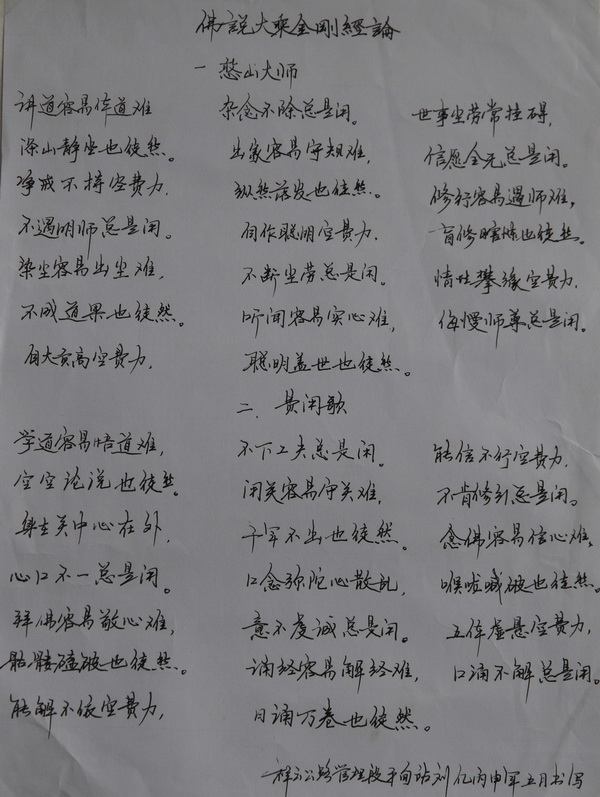 佛説大乘金剛經論
一 憨山大师
讲道容易体道难 杂念不除总是闲。 世事尘劳常挂碍,
深山静坐也徒然。 出家容易守规难, 信愿全无总是闲。
净戒不持空费力. 纵然落发也徒然. 修行容易遇师难,
不遇明师总是闲。 自作聪明空费力. 盲修瞎炼也徒然.
染尘容易出尘难, 不断尘劳总是闲。 情性攀缘空费力,
不成道果也徒然。 听闻容易实心难, 侮慢师尊总是闲。
自大贡高空费力, 聪明盖世也徒然。
二. 费闲歌
学道容易悟道难, 不下工夫总是闲. 能信不行空费力.
空空论说也徒然。 闭关容易守关难, 不肯修行总是闲。
身在关中心在外, 千年不出也徒然。 念佛容易信心难,
心口不一总是闲。 口念弥陀心散乱, 喉咙喊破也徒然.
拜佛容易敬心难, 意不虔诚总是闲。 五体虚悬空费力,
骷髅磕破也徒然. 诵经容易解经难, 口诵不解总是闲.
能解不依空费力, 日诵万卷也徒然。
公路管理段 站刘 丙申年五月书写